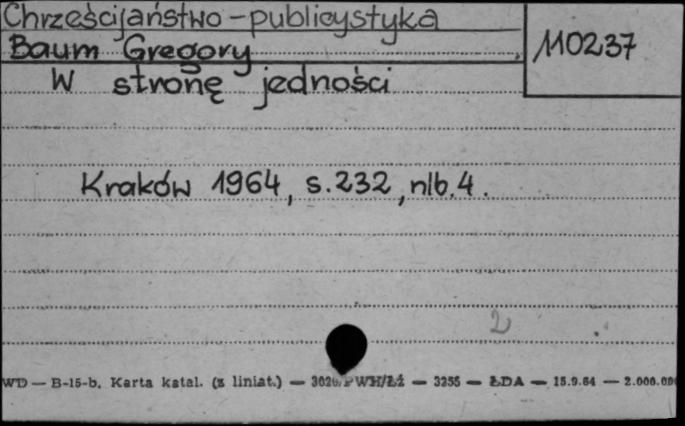 Chrześcijaństwo - publicystyka
Baum Gregory
110237
W stronę jedności
Kraków 1964, s. 232, nlb. 4.
2
WD — B-15-b. Karta katal. (z liniat.) — 3020/PWH/Łź — 3255 — ŁDA — 15.9.64 — 2.000.000